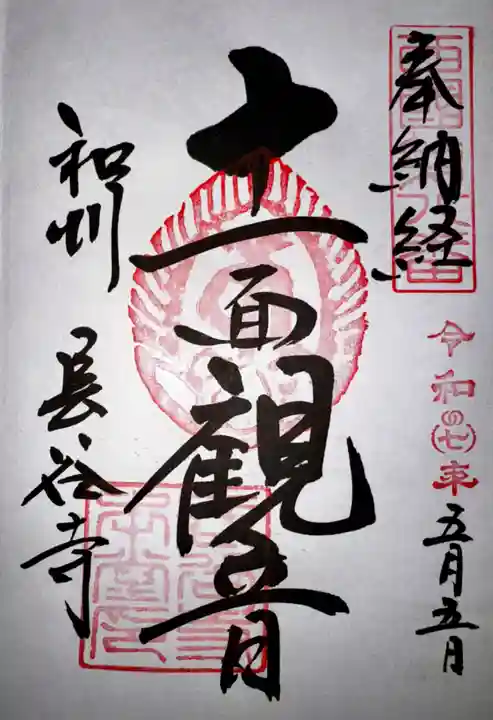 奉納経
令和(七)年五月五日
十一面観音
和州
長谷寺